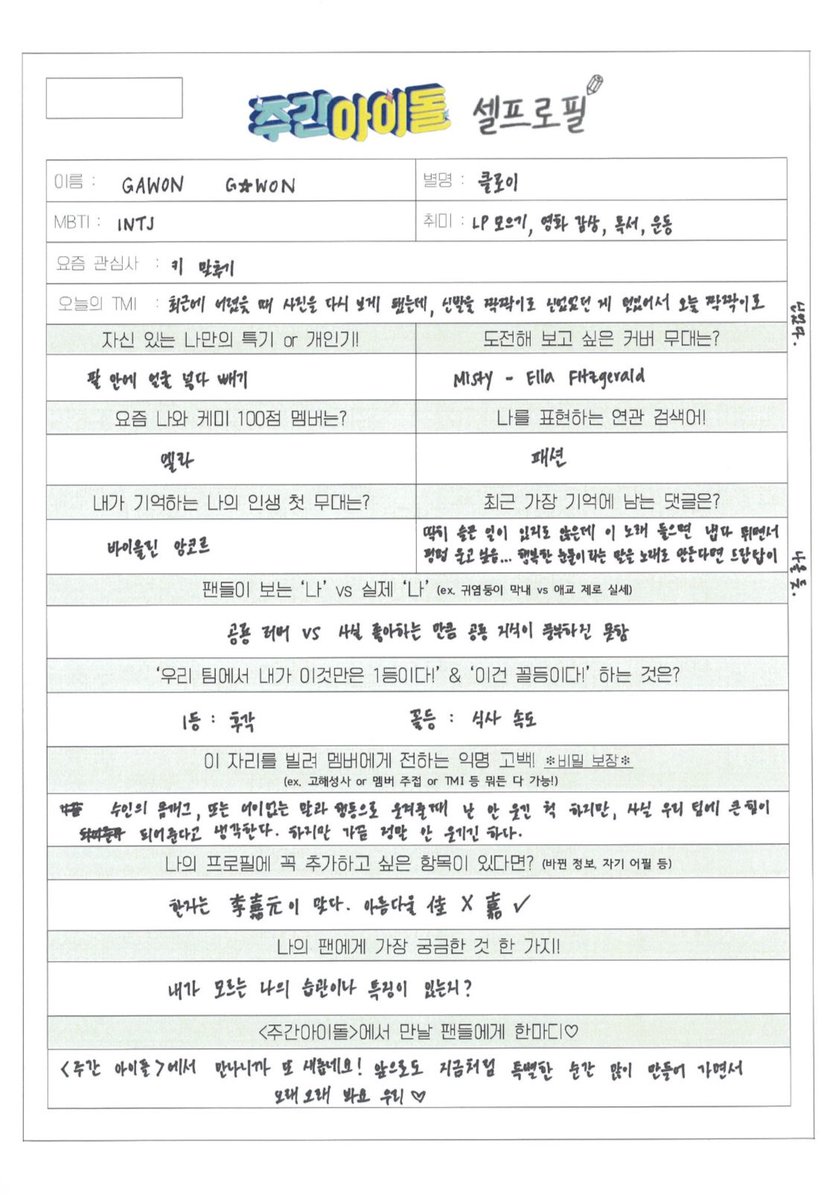 주간아이돌 셀프로필
이름 : GAWON G☆WON
별명 : 클로이
MBTI : INTJ
취미 : LP 모으기, 영화 감상, 독서, 운동
요즘 관심사 : 키 맞추기
오늘의 TMI : 최근에 어렸을 때 사진을 다시 보게 됐는데, 신발을 짝짝이로 신었었던 게 있었어서 오늘 짝짝이로
신었다.
자신 있는 나만의 특기 or 개인기!
도전해 보고 싶은 커버 무대는?
팔 안에 얼굴 넣다 빼기
Misty - Ella Fitzgerald
요즘 나와 케미 100점 멤버는?
나를 표현하는 연관 검색어!
엘라
패션
내가 기억하는 나의 인생 첫 무대는?
최근 가장 기억에 남는 댓글은?
바이올린 앙코르
딱히 슬픈 일이 있지도 않은데 이 노래 들으면 냅다 뛰면서
펑펑 울고 싶음... 행복한 눈물이라는 말을 노래로 만든다면 드란탑이
나올 듯.
팬들이 보는 '나' vs 실제 '나' (ex. 귀염둥이 막내 vs 애교 제로 실세)
공룡 러버 VS 사실 좋아하는 만큼 공룡 지식이 풍부하진 못함
'우리 팀에서 내가 이것만은 1등이다!' & '이건 꼴등이다!' 하는 것은?
1등 : 후각 꼴등 : 식사 속도
이 자리를 빌려 멤버에게 전하는 익명 고백! ※비밀 보장※
(ex. 고해성사 or 멤버 주접 or TMI 등 뭐든 다 가능!)
수인의 몸개그, 또는 어이없는 말과 행동으로 웃겨줄 때 난 안 웃긴 척 하지만, 사실 우리 팀에 큰 힘이
되어준다고 생각한다. 하지만 가끔 정말 안 웃기긴 하다.
나의 프로필에 꼭 추가하고 싶은 항목이 있다면? (바뀐 정보, 자기 어필 등)
한자는 李嘉元이 맞다. 아름다울 佳 X 嘉 ✓
나의 팬에게 가장 궁금한 것 한 가지!
내가 모르는 나의 습관이나 특징이 있는지?
<주간아이돌>에서 만날 팬들에게 한마디♡
<주간 아이돌>에서 만나니까 또 새롭네요! 앞으로도 지금처럼 특별한 순간 많이 만들어 가면서
오래오래 봐요 우리♡